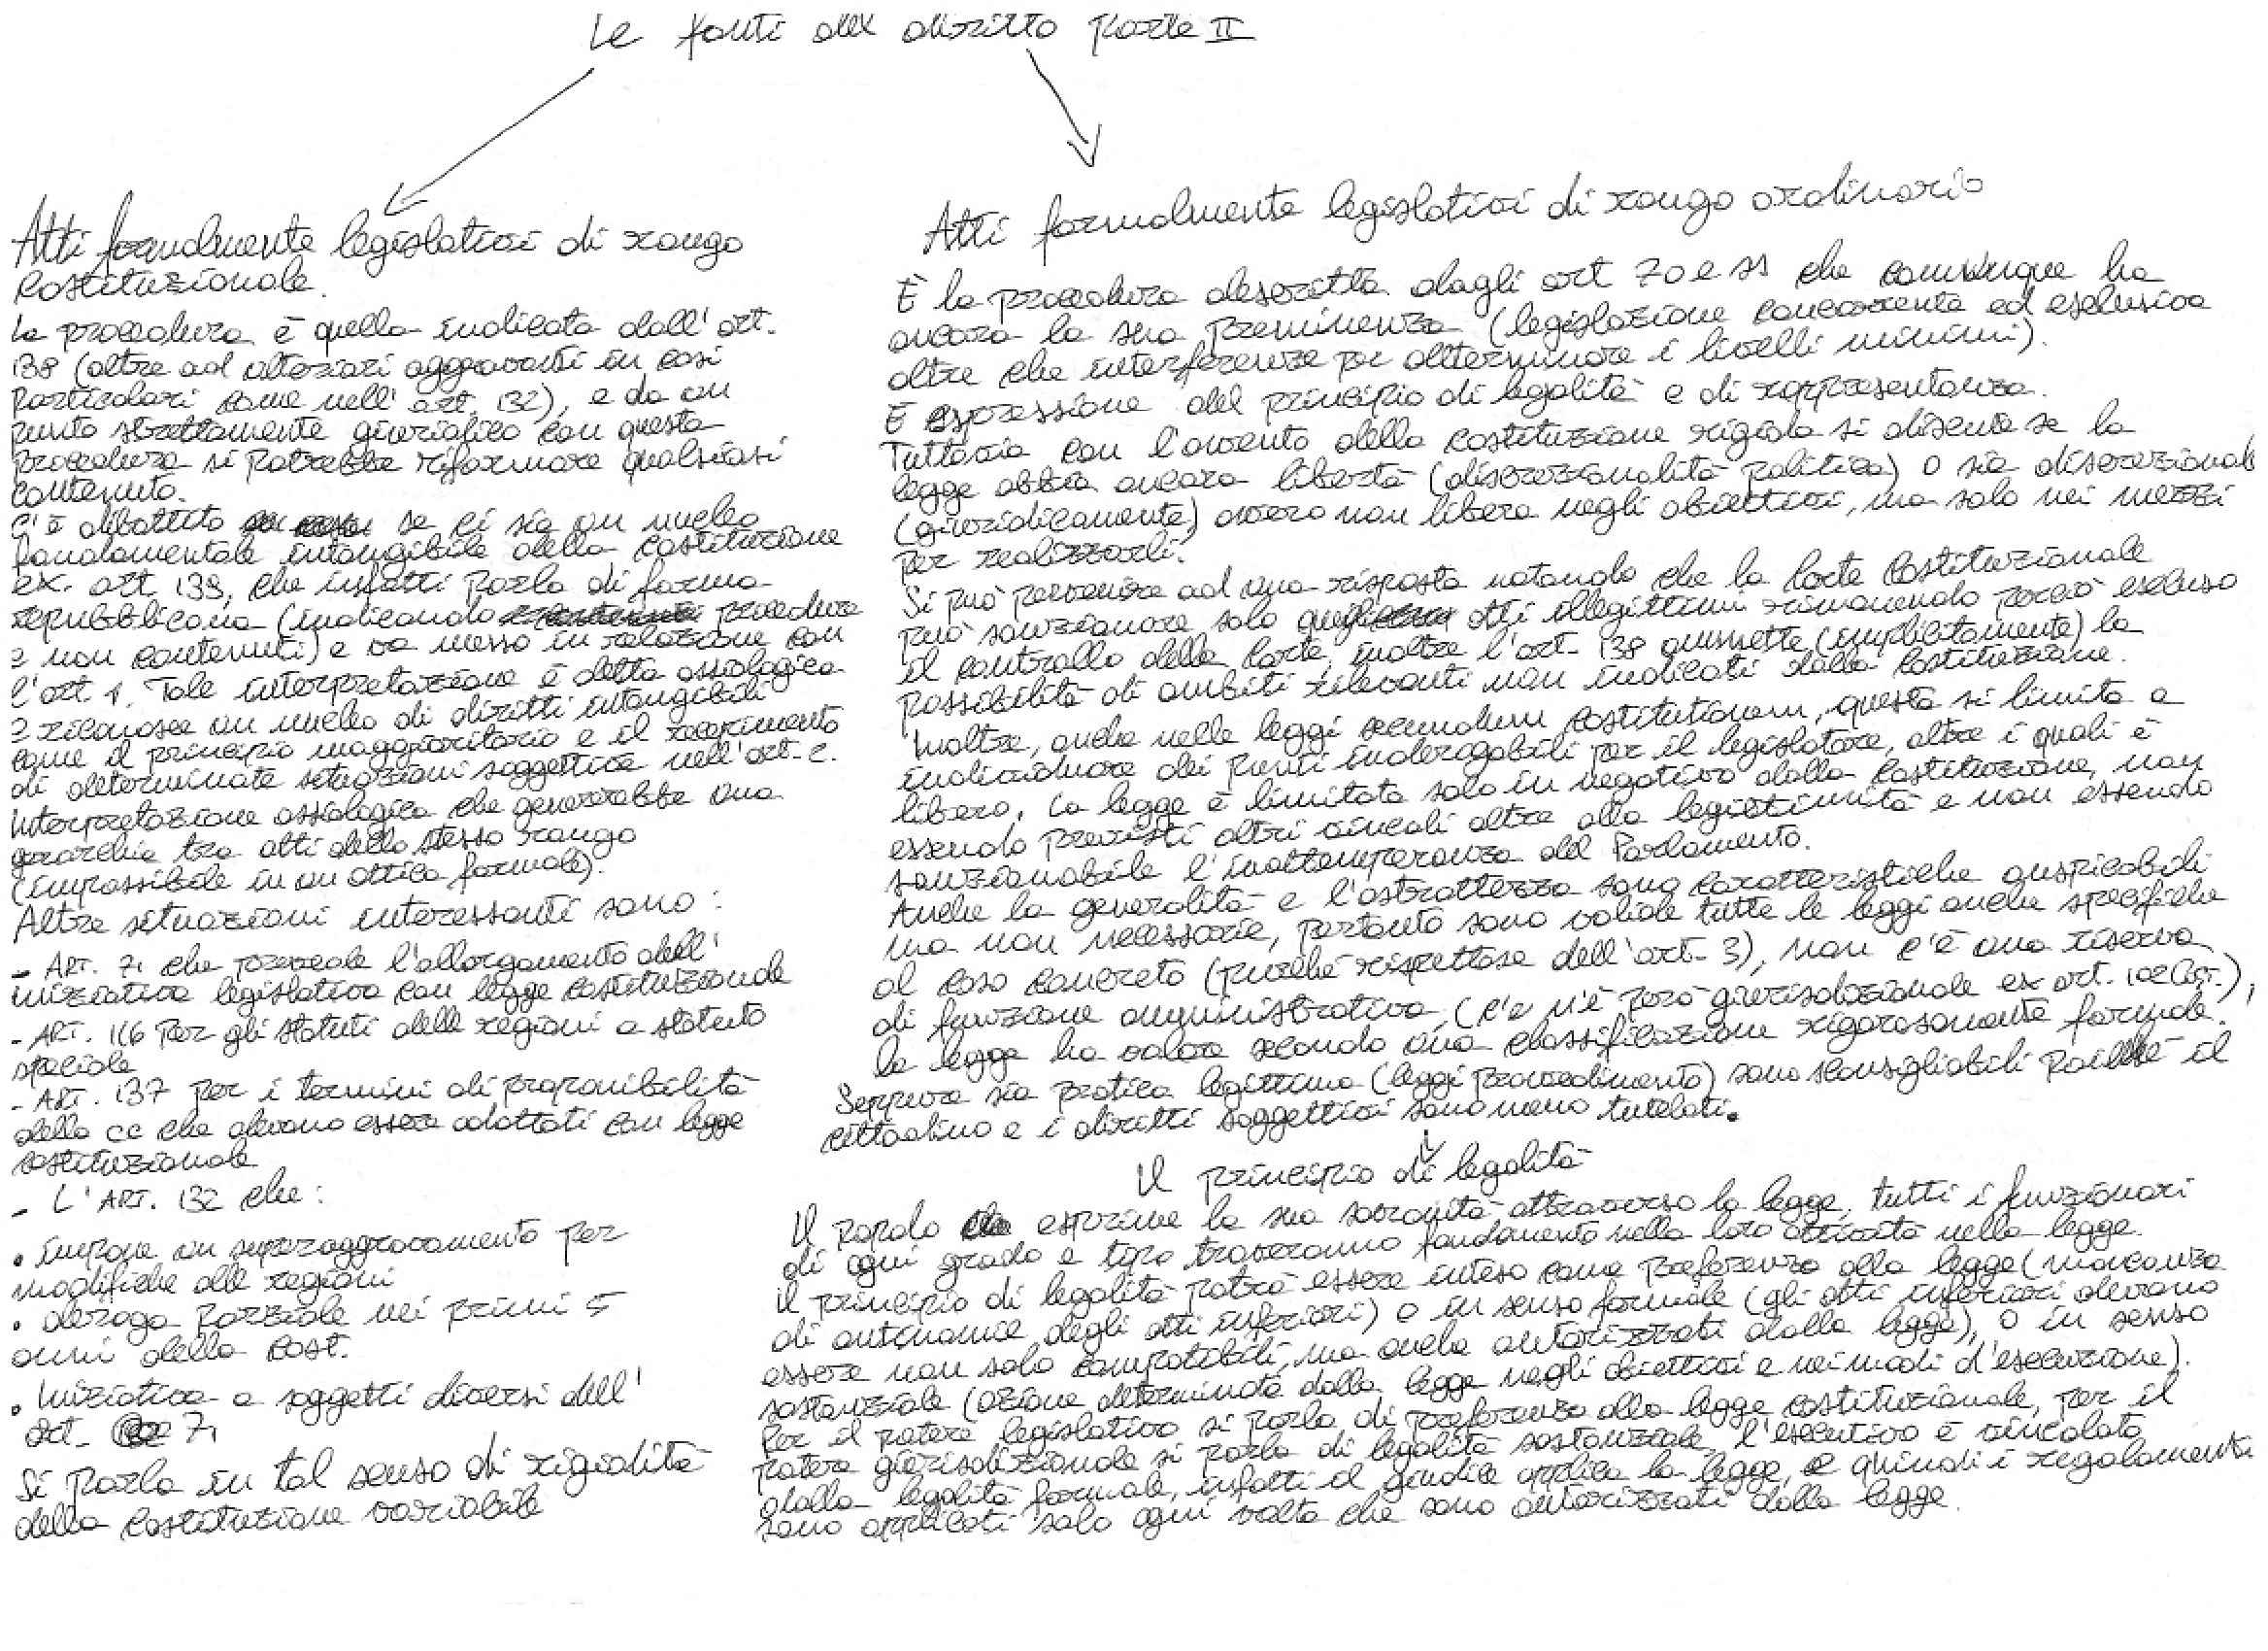 Le fonti del diritto parte II
Atti formalmente legislativi di rango
Costituzionale.
La procedura è quella indicata dall'art.
138 (oltre ad ulteriori aggravanti in casi
particolari come nell'art. 132), e da un
punto strettamente giuridico con questa
procedura si potrebbe riformare qualsiasi
contenuto.
C'è dibattito se ci sia un nucleo
fondamentale intangibile della costituzione
ex. art. 139, che infatti parla di forma
repubblicana (indicando procedure
e non contenuti) e va messo in relazione con
l'art. 1. Tale interpretazione è detta assiologica
e riconosce un nucleo di diritti intangibili
come il principio maggioritario e il
di determinate situazioni soggettive nell'art. 2.
Interpretazione assiologica che genererebbe una
gerarchia tra atti dello stesso rango
(impossibile in un ottica formale).
Altre situazioni interessanti sono:
- ART. 71 che prevede l'allargamento dell'
iniziativa legislativa con legge costituzionale
- ART. 116 per gli statuti delle regioni a statuto
speciale
- ART. 137 per i termini di proponibilità
della CC che devono essere adottati con legge
costituzionale
- L'ART. 132 che:
• impone un superaggravamento per
modifiche alle regioni
• deroga parziale nei primi 5
anni della cost.
• Iniziativa a soggetti diversi dell'
art. 71
Si parla in tal senso di rigidità
della Costituzione variabile
Atti formalmente legislativi di rango ordinario
È la procedura descritta dagli art 70 e ss che comunque ha
ancora la sua preminenza (legislazione concorrente ed esclusiva
oltre che interferenze per determinare i livelli minimi).
È espressione del principio di legalità e di rappresentanza.
Tuttavia con l'avvento della costituzione rigida si discute se la
legge abbia ancora libertà (discrezionalità politica) o sia discrezionale
(giuridicamente) ovvero non libera negli obiettivi, ma solo nei mezzi
per realizzarli.
Si può pervenire ad una risposta notando che la Corte Costituzionale
può sanzionare solo atti illegittimi rimanendo perciò escluso
il controllo della Corte, inoltre l'art. 138 ammette (implicitamente) la
possibilità di ambiti rilevanti non indicati dalla Costituzione.
Inoltre, anche nelle leggi secundum costitutionem, questa si limita a
individuare dei punti inderogabili per il legislatore, oltre i quali è
libero. La legge è limitata solo in negativo dalla Costituzione, non
essendo previsti altri vincoli oltre alla legittimità e non essendo
sanzionabile l'inottemperanza del Parlamento.
Anche la generalità e l'astrattezza sono caratteristiche auspicabili
ma non necessarie, pertanto sono valide tutte le leggi anche specifiche
al caso concreto (purché rispettose dell'art. 3), non c'è una riserva
di funzione amministrativa, (ce n'è però giurisdizionale ex art. 102 Cost.),
la legge ha valore secondo una classificazione rigorosamente formale.
Seppure sia pratica legittima (leggi provvedimento) sono sconsigliabili poiché il
cittadino e i diritti soggettivi sono meno tutelati.
Il principio di legalità
Il popolo esprime la sua sovranità attraverso la legge, tutti i funzionari
di ogni grado e tipo troveranno fondamento nella loro attività nella legge.
Il principio di legalità potrà essere inteso come preferenza alla legge (mancanza
di antinomie degli atti inferiori) o in senso formale (gli atti inferiori devono
essere non solo compatibili, ma anche autorizzati dalla legge), o in senso
sostanziale (azione determinata dalla legge negli obiettivi e nei modi d'esecuzione).
Per il potere legislativo si parla di preferenza alla legge costituzionale, per il
potere giurisdizionale si parla di legalità sostanziale, l'esecutivo è vincolato
dalla legalità formale, infatti il giudice applica la legge, e quindi i regolamenti
sono applicati solo ogni volta che sono autorizzati dalla legge.